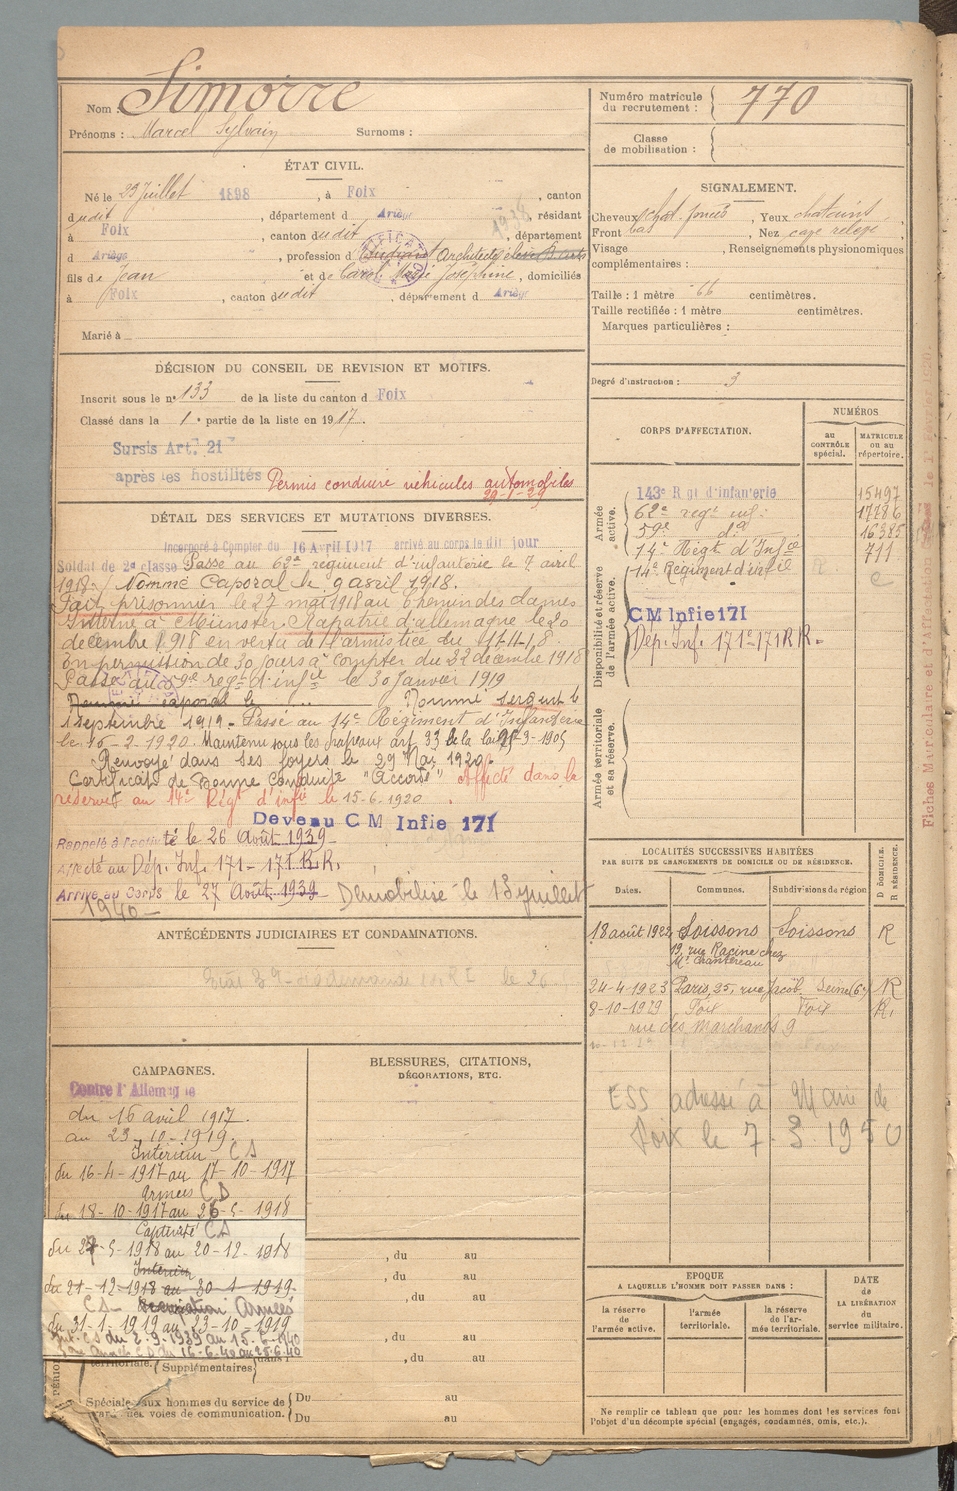 Nom : Simorre
Prénoms : Marcel Sylvain Surnoms :
ÉTAT CIVIL.
Né le 23 Juillet 1898, à Foix, canton
dudit, département d Ariège, résidant
à Foix, canton dudit, département
d Ariège, profession d Etudiant Architecte élève B. arts
fils de Jean et de Carol Marie Joséphine, domiciliés
à Foix, canton dudit, département d Ariège
Marié à
DÉCISION DU CONSEIL DE REVISION ET MOTIFS.
Inscrit sous le n° 133 de la liste du canton d Foix
Classé dans la 1e partie de la liste en 1917.
Sursis Art. 21
après les hostilités Permis conduire véhicules automobiles
29-1-29
DÉTAIL DES SERVICES ET MUTATIONS DIVERSES.
Incorporé à Compter du 16 Avril 1917 arrivé au corps le dit jour
Soldat de 2e classe Passé au 62e régiment d'infanterie le 9 avril
1918. Nommé Caporal le 9 avril 1918.
Fait prisonnier le 27 mai 1918 au Chemin des dames
Interné à Munster Rapatrié d'allemagne le 20
décembre 1918 en vertu de l'armistice du 11-11-18.
En permission de 30 jours à compter du 22 décembre 1918
Passé au 59e régt d'infie le 30 janvier 1919
Nommé caporal le Nommé sergent le
1 septembre 1919. Passé au 14e Régiment d'Infanterie
le 15-2-1920. Maintenu sous les drapeaux art 33 de la loi 21-3-1905
Renvoyé dans ses foyers le 29 Mai 1920.
Certificat de Bonne Conduite "Accordé" Affecté dans la
réserve au 14e Régt d'infie le 15-6-1920.
Devenu CM Infie 171
Rappelé à l'activité le 26 Août 1939
Affecté au Dép. Inf. 171 - 171 R.R.
Arrivé au Corps le 27 Août 1939 Démobilisé le 13 juillet
1940
ANTÉCÉDENTS JUDICIAIRES ET CONDAMNATIONS.
CAMPAGNES.
Contre l'Allemagne
du 16 avril 1917.
au 23-10-1919.
Intérieur CS
du 16-4-1917 au 17-10-1917
Armées CD
du 18-10-1917 au 26-5-1918
Captivité CS
du 27-5-1918 au 20-12-1918
Intérieur
du 21-12-1918 au 30-1-1919.
CS Armées
du 31-1-1919 au 23-10-1919
Int. CS du 2.9.1939 au 15.6.1940
CD du 16-6-40 au 25.6.40
territoriale. Supplémentaires
Spéciale aux hommes du service de
garde des voies de communication.
Du au
Du au
BLESSURES, CITATIONS,
DÉCORATIONS, ETC.
, du au
, du au
, du au
, du au
, du au
Numéro matricule
du recrutement : 770
Classe
de mobilisation :
SIGNALEMENT.
Cheveux chat. foncés, Yeux chatains
Front bas, Nez cave relevé
Visage , Renseignements physionomiques
complémentaires :
Taille : 1 mètre 66 centimètres.
Taille rectifiée : 1 mètre centimètres.
Marques particulières :
Degré d'instruction : 3
CORPS D'AFFECTATION.
NUMÉROS
au
CONTRÔLE
spécial.
MATRICULE
ou au
répertoire.
Armée
active.
143e Rgt d'infanterie 15497
62e regt inf. 17286
59e do 16385
14e Régt d'Infie 711
Disponibilité et réserve
de l'armée active.
14e Régiment d'infie
CM Infie 171
Dép. Inf. 171 - 171 RR.
Armée territoriale
et sa réserve.
LOCALITÉS SUCCESSIVES HABITÉES
PAR SUITE DE CHANGEMENTS DE DOMICILE OU DE RÉSIDENCE.
Dates. Communes. Subdivisions de région
D DOMICILE.
R RÉSIDENCE.
18 août 1922 Soissons Soissons R
19, rue Racine chez
Mr Chantereau
24-4-1923 Paris, 25, rue Jacob. Seine (6e) R
8-10-1929 Foix Foix R.
rue des Marchands 9
ESS adressé à Maire de
Foix le 7-3 1950
EPOQUE
A LAQUELLE L'HOMME DOIT PASSER DANS :
la réserve
de l'armée active.
l'armée
territoriale.
la réserve
de l'ar-
mée territoriale.
DATE
de
LA LIBÉRATION
du
service militaire.
Ne remplir ce tableau que pour les hommes dont les services font
l'objet d'un décompte spécial (engagés, condamnés, omis, etc.).